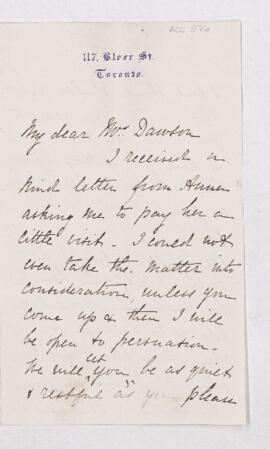 ACC 576
117, Bloor St.
Toronto.
My dear Mrs Dawson
I received a
kind letter from Anna
asking me to pay her a
little visit. I could not
even take the matter into
consideration, unless you
come up & then I will
be open to persuation.
We will let you be as quiet
& restful as you please